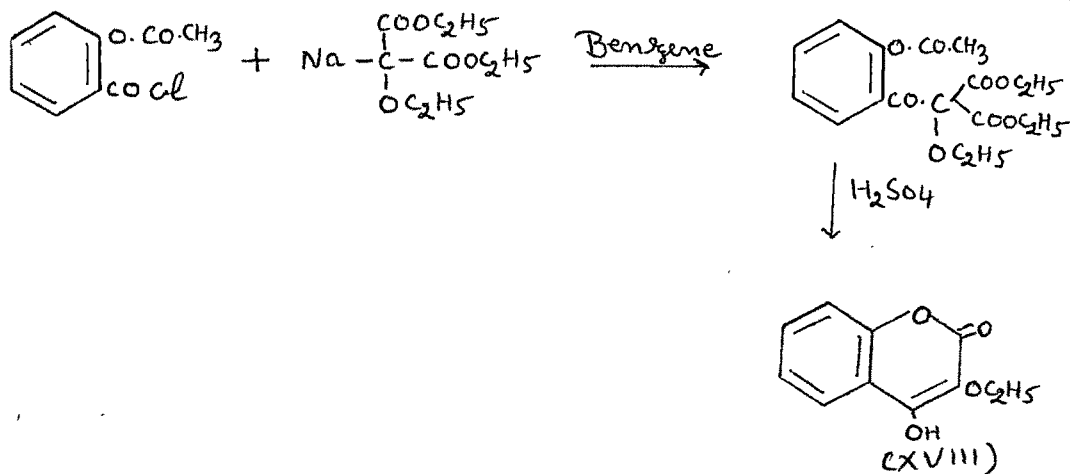 O.CO.CH3
COCl
+
COOC2H5
Na - C - COOC2H5
OC2H5
Benzene
O.CO.CH3
CO.C
COOC2H5
COOC2H5
OC2H5
H2SO4
O
O
OC2H5
OH
(XVIII)